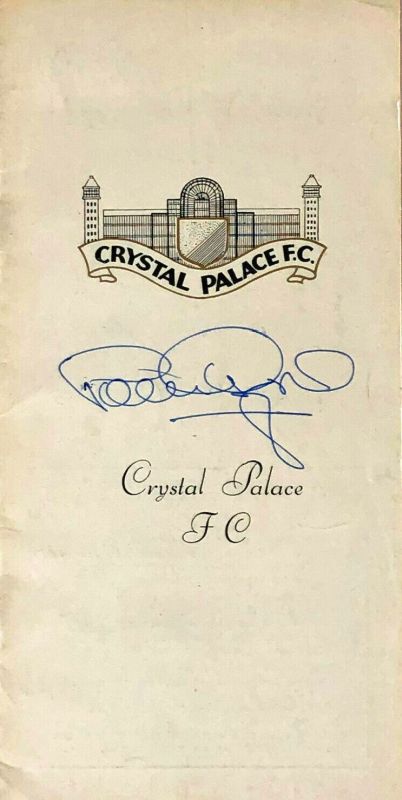 CRYSTAL PALACE F.C.
Crystal Palace
F C